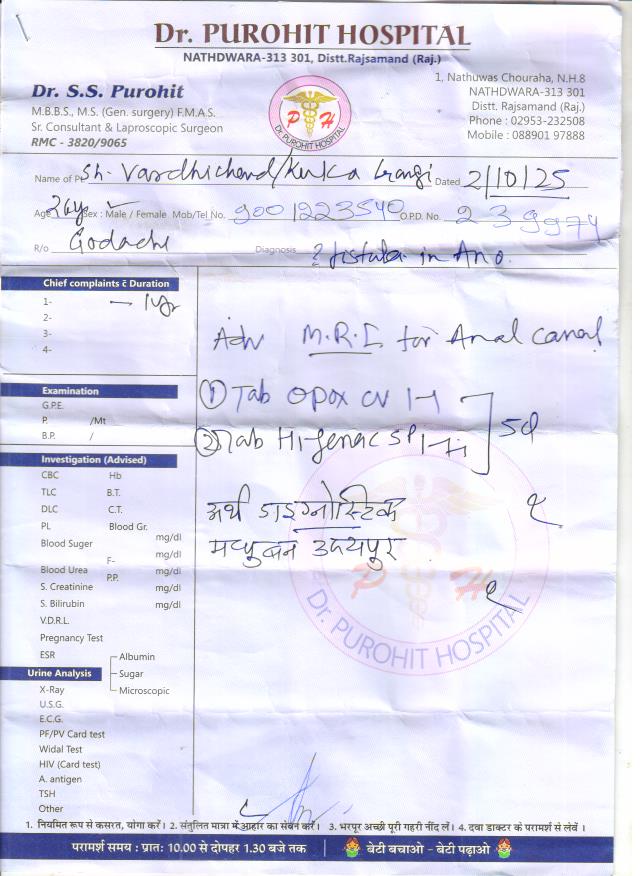 Dr. PUROHIT HOSPITAL
NATHDWARA-313 301, Distt.Rajsamand (Raj.)
Dr. S.S. Purohit
M.B.B.S., M.S. (Gen. surgery) F.M.A.S.
Sr. Consultant & Laproscopic Surgeon
RMC - 3820/9065
P H
Dr. PUROHIT HOSPITAL
1, Nathuwas Chouraha, N.H.8
NATHDWARA-313 301
Distt. Rajsamand (Raj.)
Phone : 02953-232508
Mobile : 088901 97888
Name of Pt. Sh. Vardhichand/ Dated 2/10/25
Age Sex : Male / Female Mob/Tel No. 9001223540 O.P.D. No. 239974
R/o Godach Diagnosis ? fistula in Ano.
Chief complaints c̄ Duration
1- — 1yr
2-
3-
4-
Adv M.R.I for Anal canal
Examination
G.P.E.
P. /Mt
B.P. /
① Tab Opox CV 1-1
② Tab Hifenac SP 1-1
5d
Investigation (Advised)
CBC Hb
TLC B.T.
DLC C.T.
PL Blood Gr.
Blood Suger mg/dl
F- mg/dl
Blood Urea P.P. mg/dl
S. Creatinine mg/dl
S. Bilirubin mg/dl
V.D.R.L.
Pregnancy Test
ESR Albumin
Urine Analysis Sugar
X-Ray Microscopic
U.S.G.
E.C.G.
PF/PV Card test
Widal Test
HIV (Card test)
A. antigen
TSH
Other
अर्थ डाइग्नोस्टिक
मधुबन उदयपुर
P H
Dr. PUROHIT HOSPITAL
1. नियमित रूप से कसरत, योगा करें। 2. संतुलित मात्रा में आहार का सेवन करें। 3. भरपूर अच्छी पूरी गहरी नींद लें। 4. दवा डाक्टर के परामर्श से लेवें ।
परामर्श समय : प्रातः 10.00 से दोपहर 1.30 बजे तक | बेटी बचाओ - बेटी पढ़ाओ